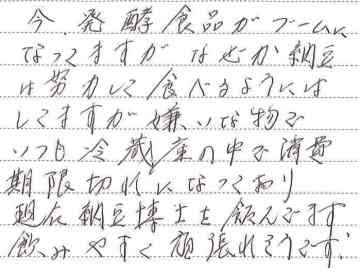 今、発酵食品がブームに
なってますが なぜか納豆
は努力して食べるようには
してますが嫌いな物で
いつも冷蔵庫の中で消費
期限切れになっており
現在納豆博士を飲んでます
飲みやすく頑張れそうです!